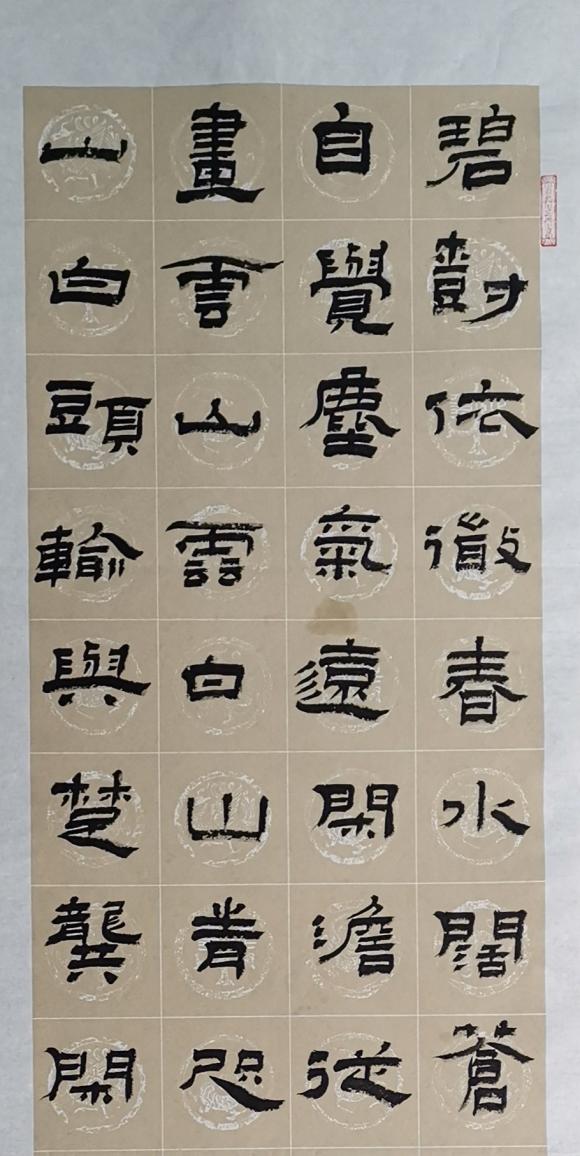 碧樹依微春水闊蒼
自覺塵氣遠閑澹從
畫雲山雲白山青咫
山白頭輸與楚龔閑